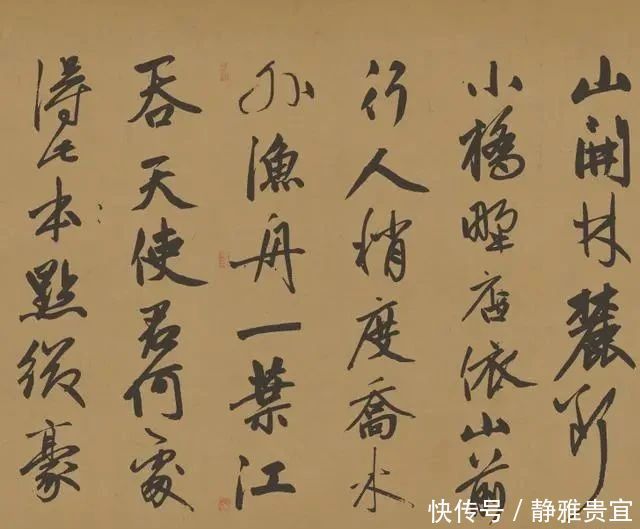 山開林麓斷
小橋野店依山前
行人稍度喬木
外漁舟一葉江
吞天使君何處
得此本點綴豪
快传号/静雅贵宜